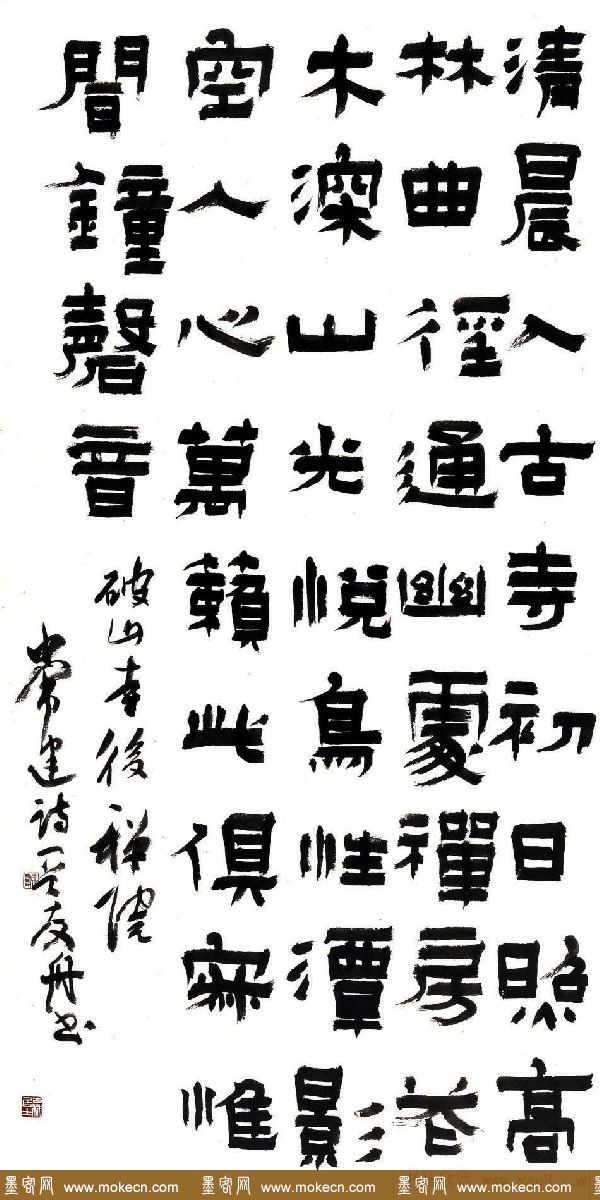 清晨入古寺初日照高
林曲徑通幽處禪房花
木深山光悅鳥性潭影
空人心萬籟此俱寂惟
聞鐘磬音
破山寺後禅院
常建诗 友舟书
www.yac8.com
墨客网 www.mokecn.com 墨客网 www.mokecn.com 墨客网 www.mokecn.com